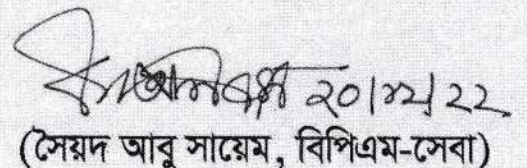 ২০।১২।২২
(সৈয়দ আবু সায়েম, বিপিএম-সেবা)